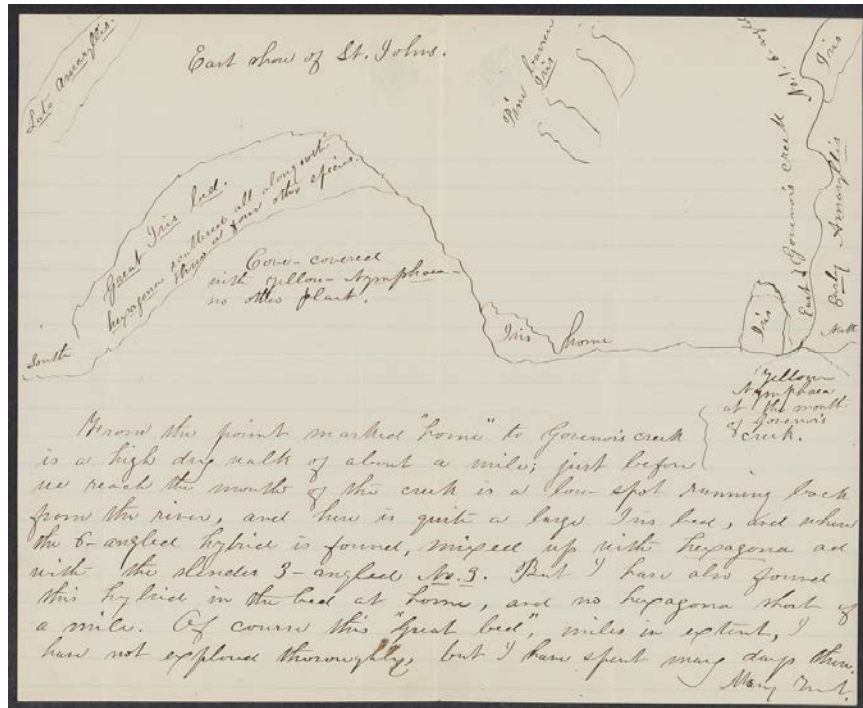 Late Amaryllis.
East shore of St. Johns.
Pine barren
Iris
No. 1. 6-angled
Iris
Great Iris bed.
hexagona scattered all along with
three or four other species.
Cove-covered
with yellow-Nymphaea-
no other plant.
South
Iris
home
Iris
East of Governor's creek
Early Amaryllis
North
Yellow
Nymphaea
at the mouth
of Governor's
creek.
From the point marked "home" to Governor's creek
is a high dry walk of about a mile; just before
we reach the mouth of the creek is a low spot running back
from the river, and here is quite a large Iris bed, and where
the 6-angled hybrid is found, mixed up with hexagona and
with the slender 3-angled No. 3. But I have also found
this hybrid in the bed at home, and no hexagona short of
a mile. Of course this "great bed", miles in extent, I
have not explored thoroughly, but I have spent many days there.
Mary Treat.